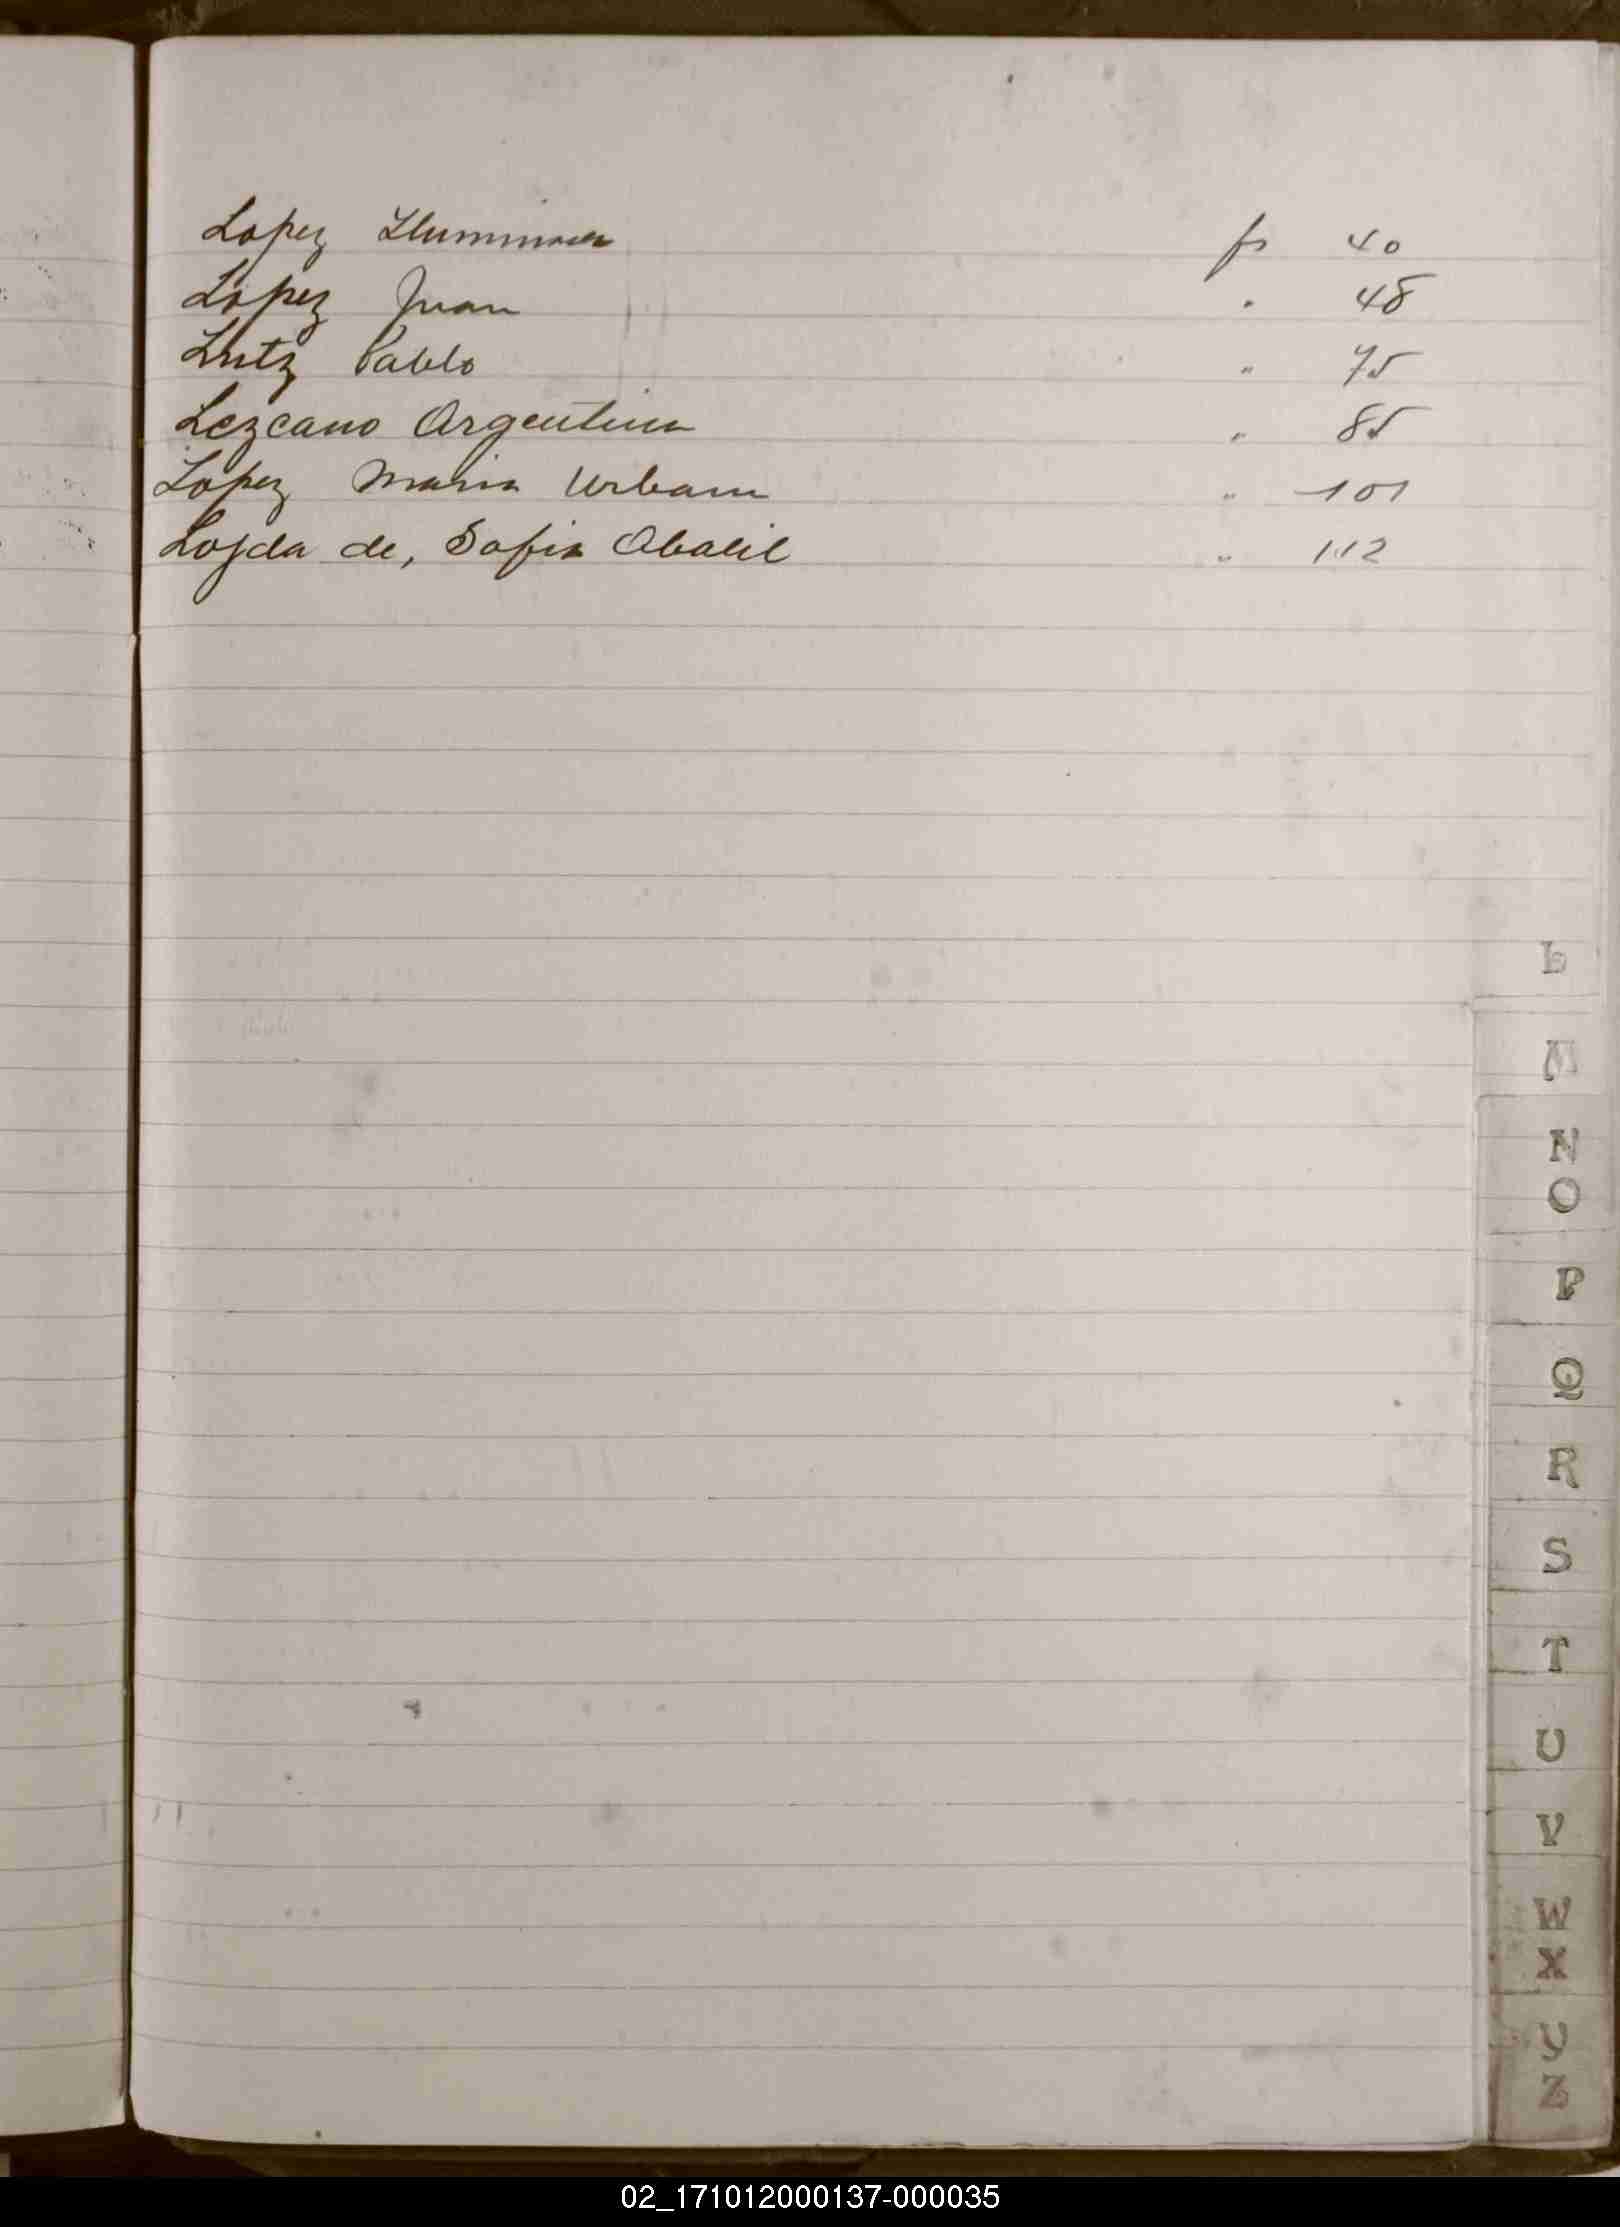 Lopez Iluminada fs 40
Lopez Juan " 48
Lutz Pablo " 75
Lezcano Argentina " 85
Lopez Maria Urbana " 101
de, Sofia " 112
L
M
N
O
P
Q
R
S
T
U
V
W
X
Y
Z
02_171012000137-000035